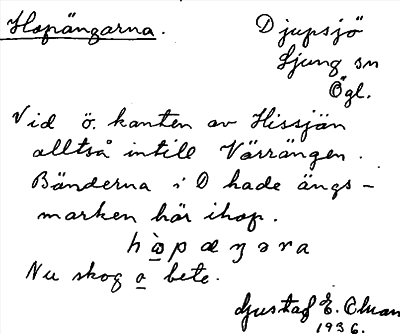 Hopängarna. Djupsjö
Ljung sn
Ögl.
Vid ö. kanten av Hissjön
alltså intill Värrängen.
Bönderna i D hade ängs-
marken här ihop.
Nu skog o bete.
Gustaf E.
1936.